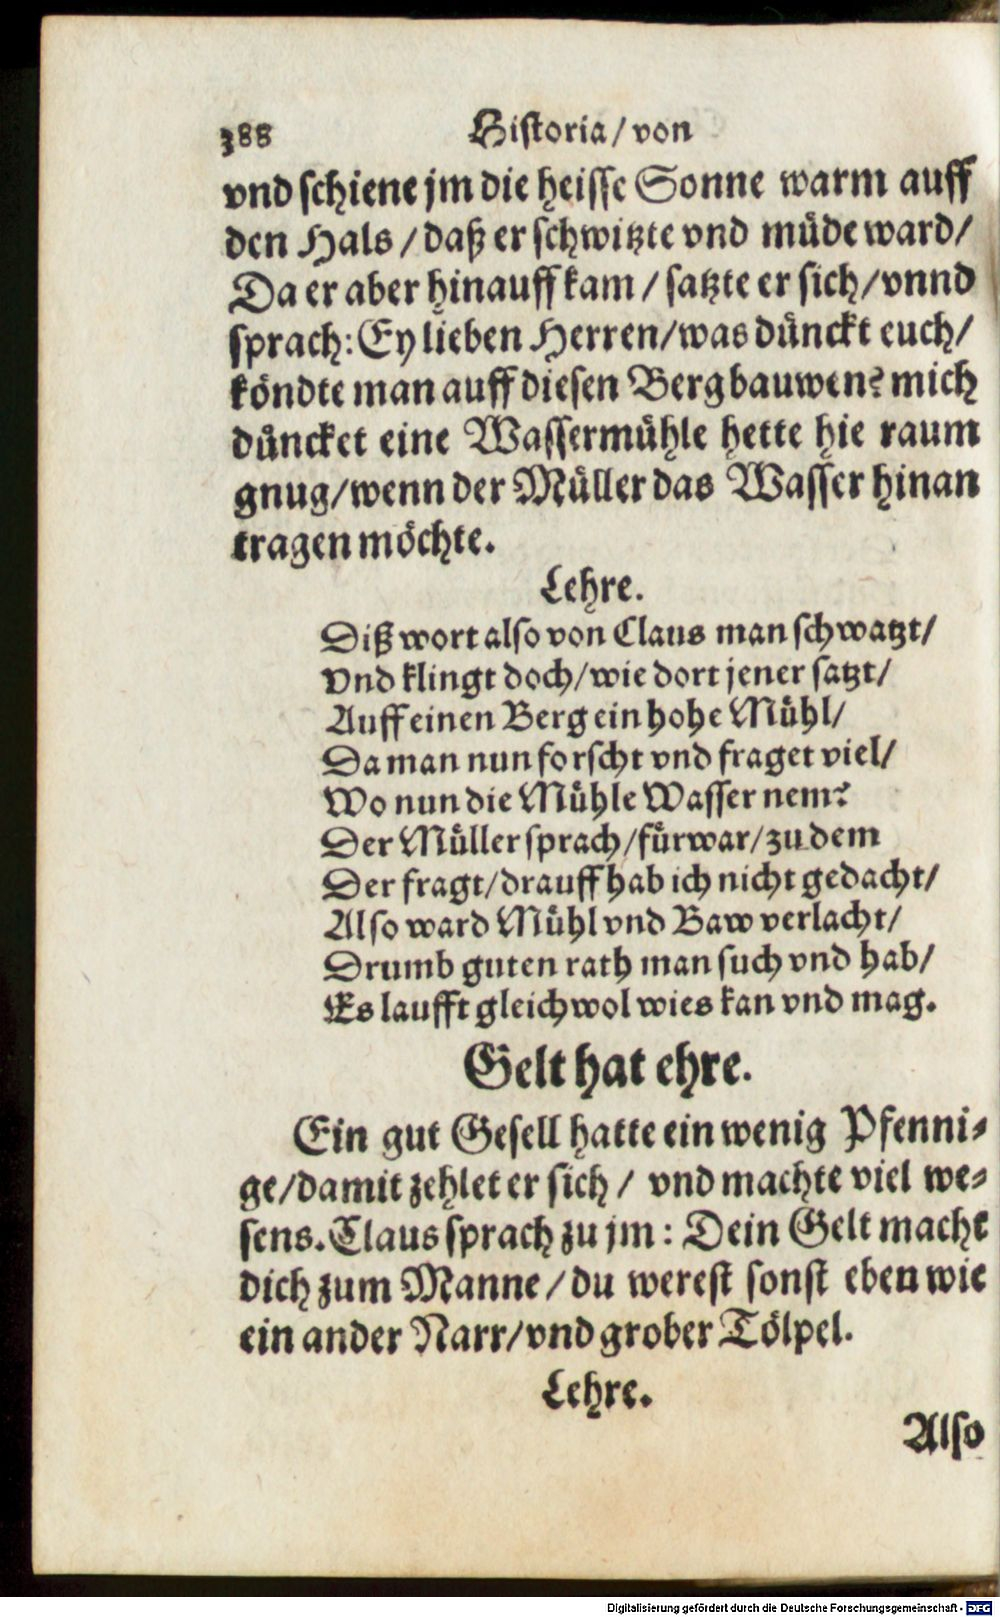 388 Historia / von
vnd schiene jm die heisse Sonne warm auff
den Hals / daß er schwitzte vnd müde ward /
Da er aber hinauff kam / satzte er sich / vnnd
sprach: Ey lieben Herren / was dünckt euch /
köndte man auff diesen Berg bauwen? mich
düncket eine Wassermühle hette hie raum
gnug / wenn der Müller das Wasser hinan
tragen möchte.
Lehre.
Diß wort also von Claus man schwatzt /
Vnd klingt doch / wie dort jener satzt /
Auff einen Berg ein hohe Mühl /
Da man nun forscht vnd fraget viel /
Wo nun die Mühle Wasser nem?
Der Müller sprach / fürwar / zu dem
Der fragt / drauff hab ich nicht gedacht /
Also ward Mühl vnd Baw verlacht /
Drumb guten rath man such vnd hab /
Es laufft gleichwol wies kan vnd mag.
Gelt hat ehre.
Ein gut Gesell hatte ein wenig Pfenni-
ge / damit zehlet er sich / vnd machte viel we-
sens. Claus sprach zu jm: Dein Gelt macht
dich zum Manne / du werest sonst eben wie
ein ander Narr / vnd grober Tölpel.
Lehre.
Also
Digitalisierung gefördert durch die Deutsche Forschungsgemeinschaft - DFG